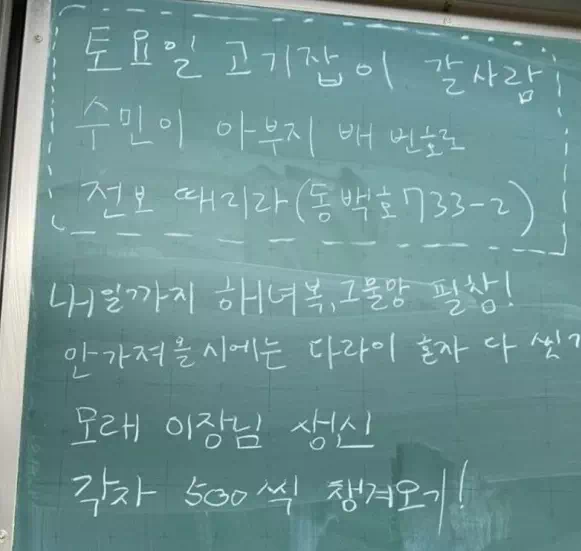 토요일 고기잡이 갈사람
수민이 아부지 배 번호로
전보 때리라(동백호733-2)
내일까지 해녀복,그물망 필참!
안가져올시에는 다라이 혼자 다 씻기
모래 이장님 생신
각자 500씩 챙겨오기!